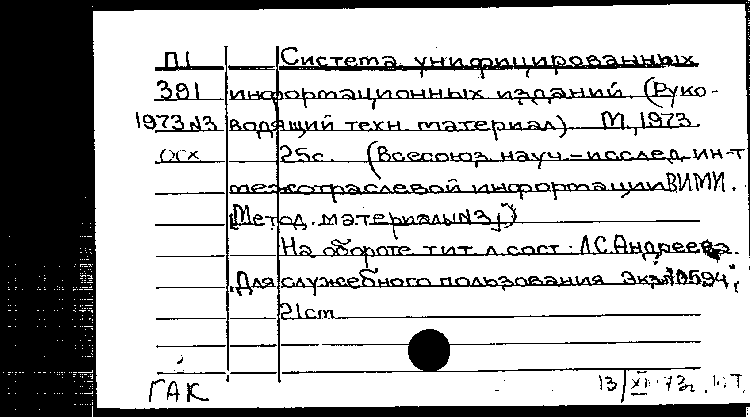 П1 Система унифицированных
381 информационных изданий. (Руко-
1973 №3 водящий техн. материал). М., 1973.
осх 25с. (Всесоюз. науч.-исслед. ин-т
межотраслевой информации ВИМИ.
[Метод. материалы №3])
На обороте тит. л. сост.: Л.С. Андреева.
"Для служебного пользования Экз.№0594";
21cm
ГАК 13/XII-73г.